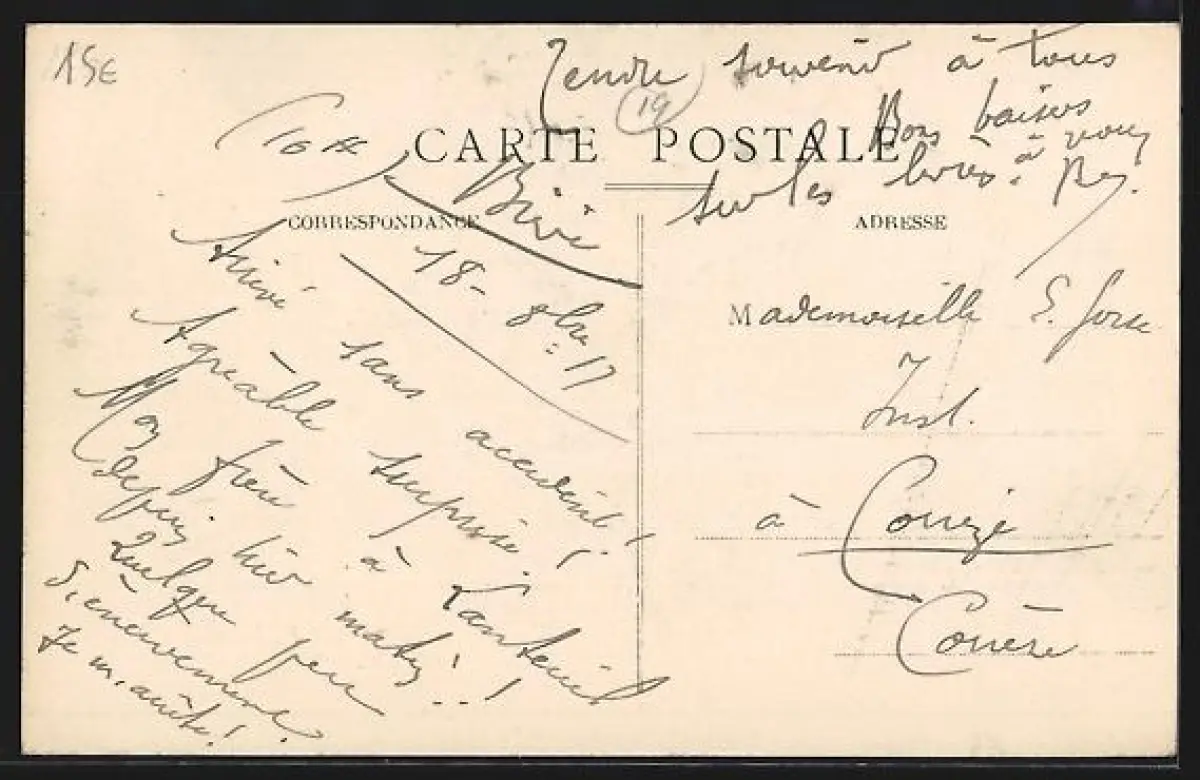 15€
Tendre souvenir à tous
(19)
Bons baisers
à vous
sur les lèvres.
CARTE POSTALE
(10 H
Brive
CORRESPONDANCE
ADRESSE
18 - 8bre 17
Arrivé sans accident!
Agréable surprise!
Mon frère à Lanteuil
depuis hier matin..!
Quelque peu
d'enervement.
Je m'arrête!
Mademoiselle E. Gorse
Inst.
à Corrèze
Corrèze